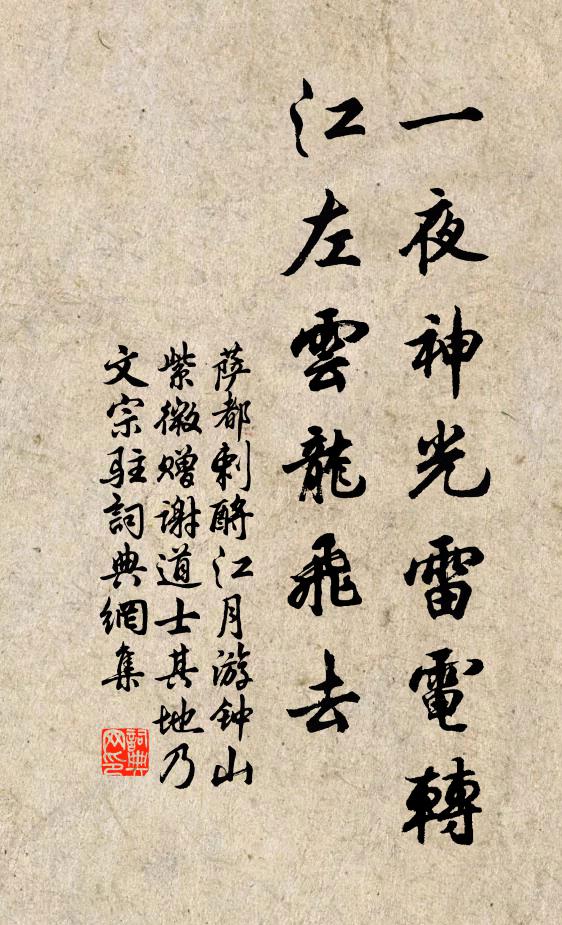 一夜神光雷電轉
江左雲龍飛去
萨都剌酹江月游钟山
紫微赠谢道士其地乃
文宗駐詞典網集
詞典網印